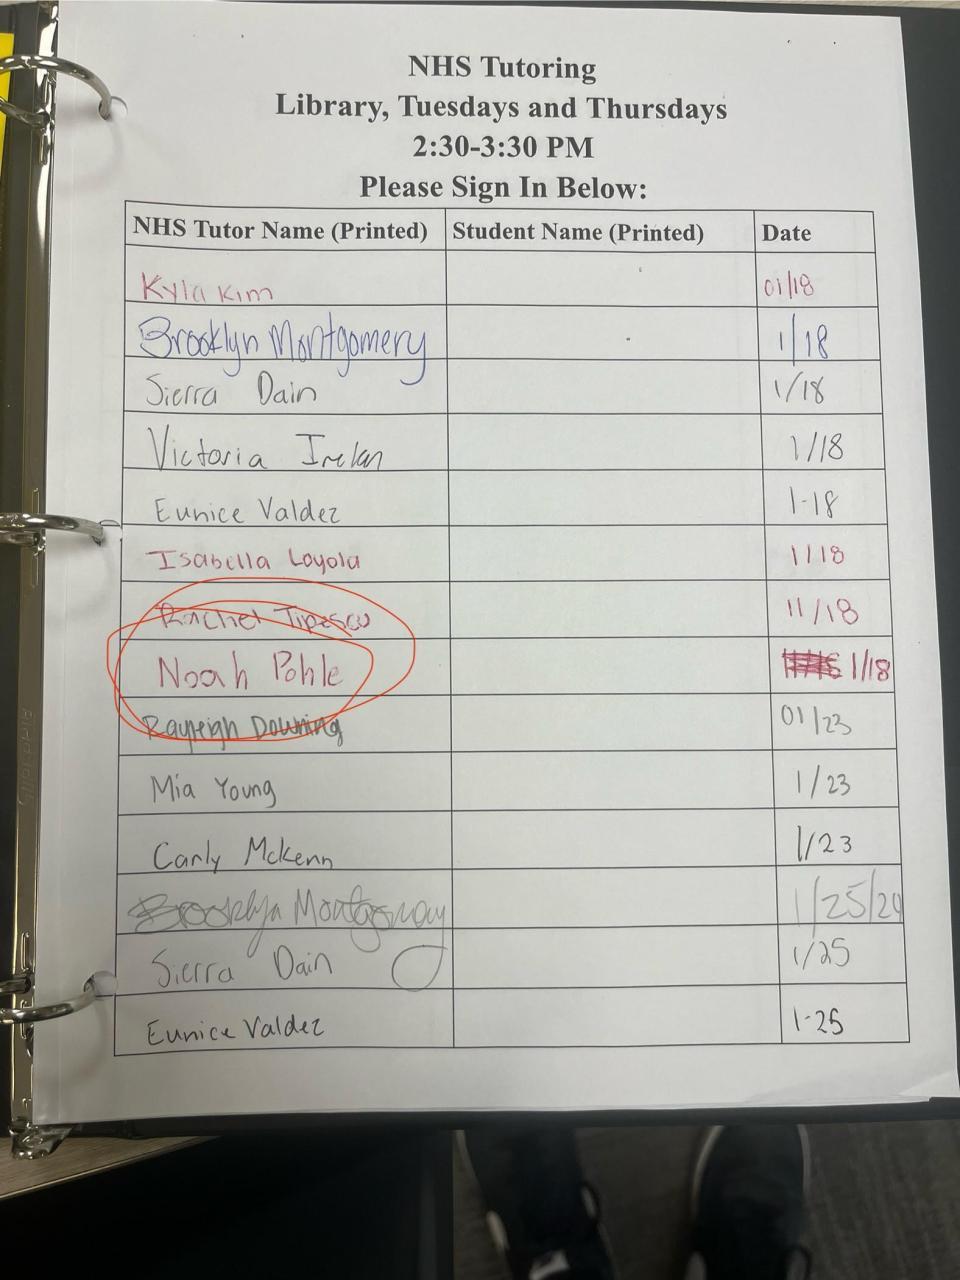 NHS Tutoring
Library, Tuesdays and Thursdays
2:30-3:30 PM
Please Sign In Below:
NHS Tutor Name (Printed) Student Name (Printed) Date
Kyla Kim 01/18
Brooklyn Montgomery 1/18
Sierra Dain 1/18
Victoria Irelan 1/18
Eunice Valdez 1-18
Isabella Loyola 1/18
Rachel 11/18
Noah Pohle 1/18
Rayleigh Downing 01/23
Mia Young 1/23
Carly McKenn 1/23
Brooklyn 1/25/24
Sierra Dain 1/25
Eunice Valdez 1-25